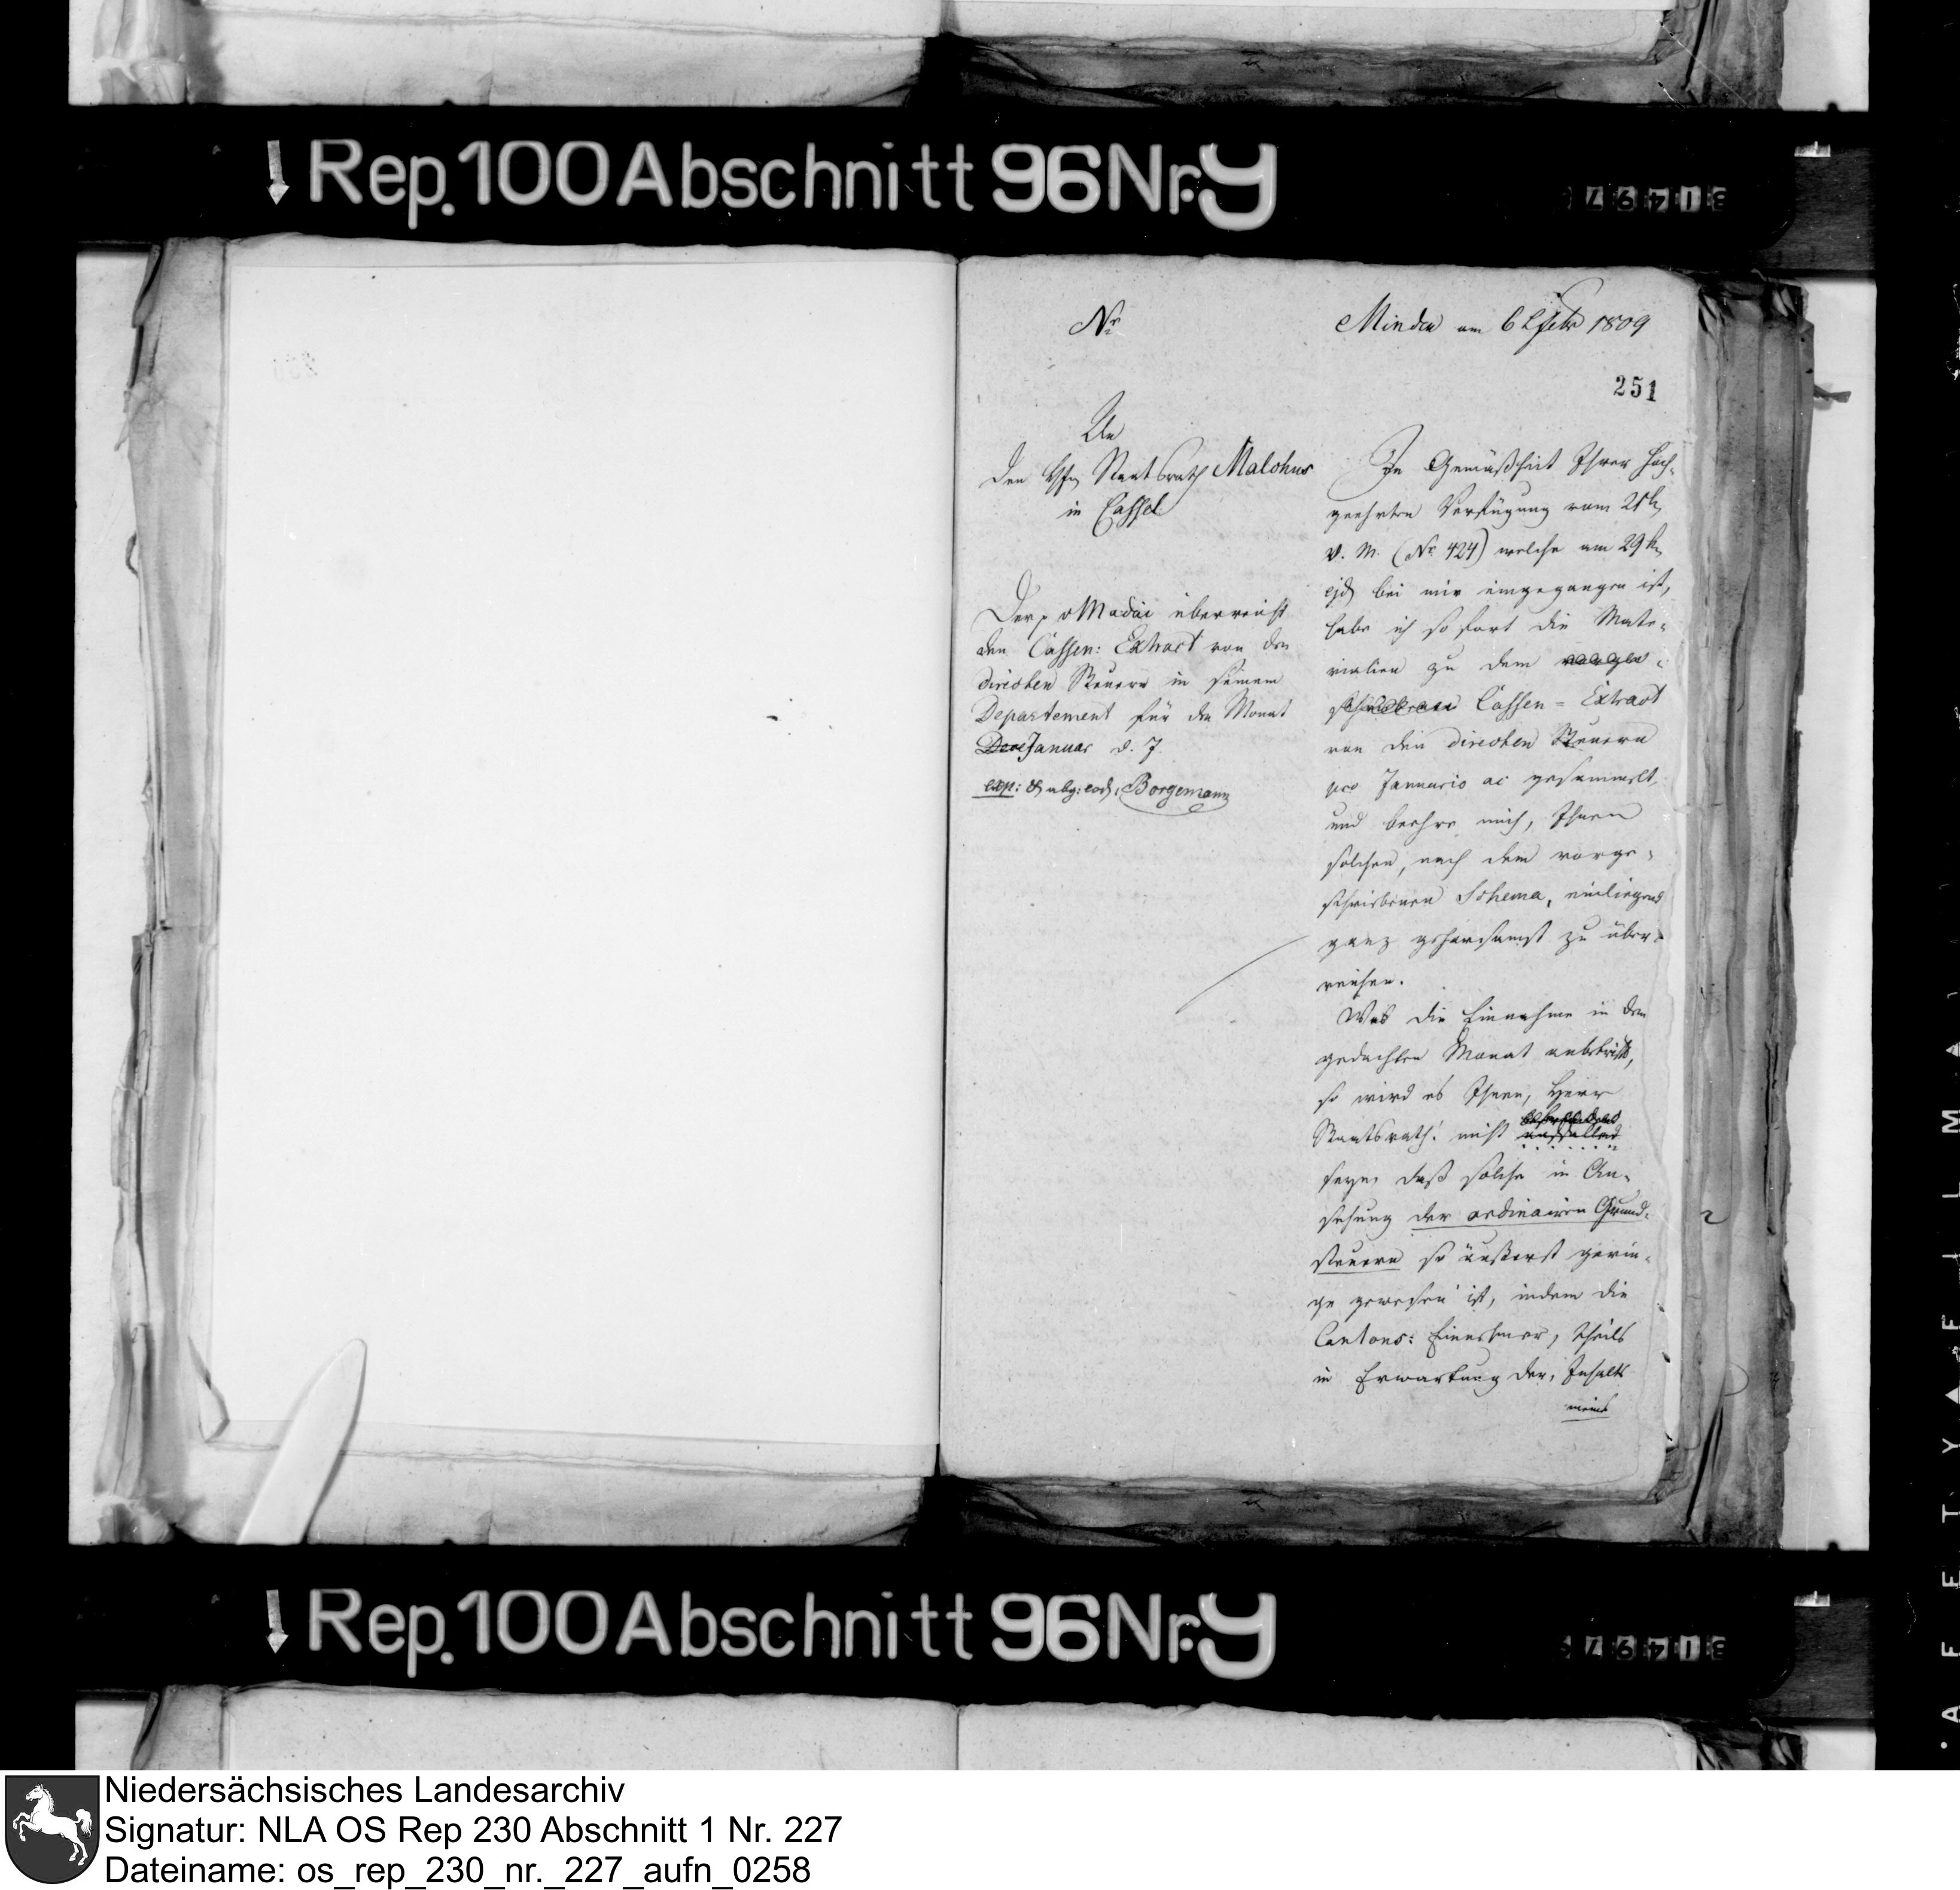 Rep. 100 Abschnitt 96 Nr. 9
Nr.
Minden am 6t Febr 1809
251
An
den Hrn Staatsrath Malchus
in Cassel
Der p v Madai überreicht
den Cassen: Extract von den
directen Steuern in seinem
Departement für den Monat
Dec Januar d. J.
exp: & abg: eod: Borgemann
In Gemäßheit Ihrer hoch-
geehrten Verfügung vom 25t
v. M. (Nr. 424) welche am 29t
ejd bei mir eingegangen ist,
habe ich so fort die Mate-
rialien zu dem vorge-
schriebenen Cassen = Extract
von den directen Steuern
pro Januario ac gesammelt,
und beehre mich, Ihnen
solchen, nach dem vorge-
schriebenen Schema, einliegend
ganz gehorsamst zu über-
reichen.
Was die Einnahme in dem
gedachten Monat anbetrifft,
so wird es Ihnen, Herr
Staatsrath! nicht auffallend
seyn, daß solche in An-
sehung der ordinairen Grund-
steuern so äußerst gerin-
ge gewesen ist, indem die
Cantons: Einnehmer, theils
in Erwartung der, Inhalts
meines
Rep. 100 Abschnitt 96 Nr. 9
Niedersächsisches Landesarchiv
Signatur: NLA OS Rep 230 Abschnitt 1 Nr. 227
Dateiname: os_rep_230_nr._227_aufn_0258